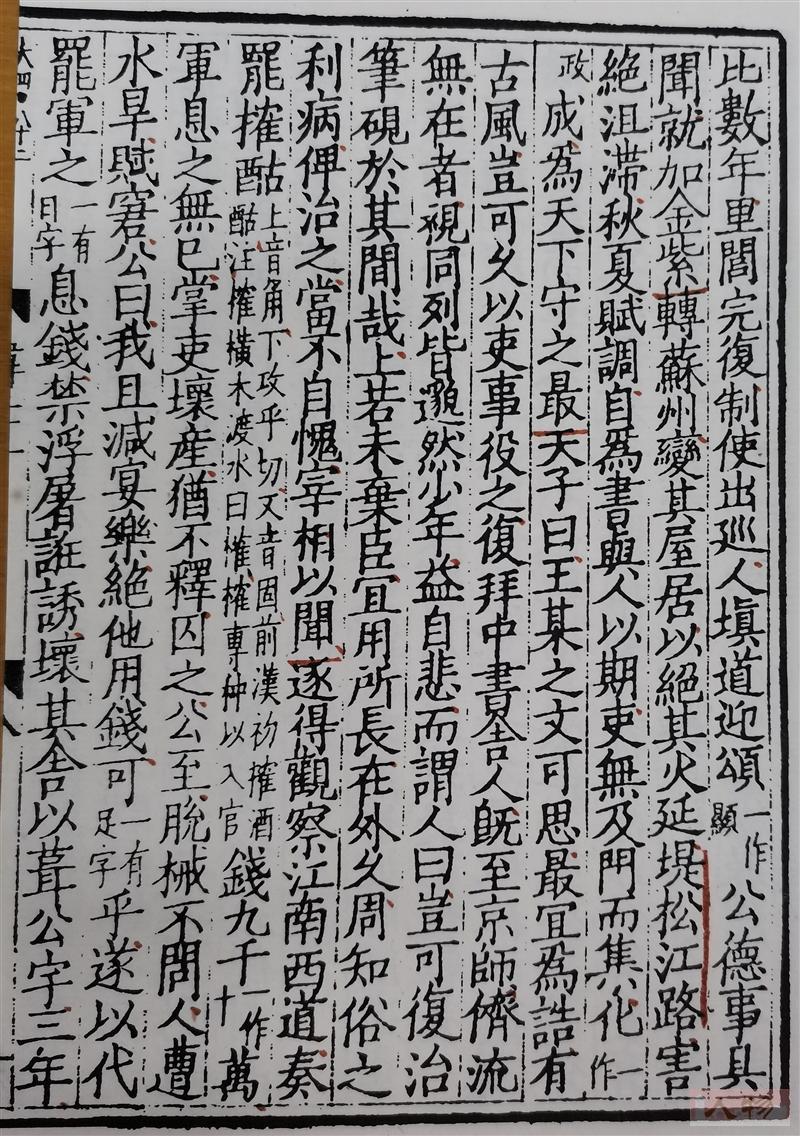 比數年里閭完復制使出巡人填道迎頌一作顯公德事具
聞就加金紫轉蘇州變其屋居以絕其火延堤松江路害
絕沮滯秋夏賦調自為書與人以期吏無及門而集化一作
政成為天下守之最天子曰王某之文可思最宜為誥有
古風豈可久以吏事役之復拜中書舍人旣至京師儕流
無在者視同列皆邈然少年益自悲而謂人曰豈可復治
筆硯於其間哉上若未棄臣宜用所長在外久周知俗之
利病俾治之當不自愧宰相以聞遂得觀察江南西道奏
罷搉酤上音角下攻乎切又音固前漢初搉酒酤注搉橫木渡水曰搉搉專种以入官錢九千一作十萬
軍息之無已掌吏壞產猶不釋囚之公至脫械不問人遭
水旱賦窘公曰我且減宴樂絕他用錢可一有足字乎遂以代
罷軍之一有日字息錢禁浮屠誑誘壞其舍以葺公字三年